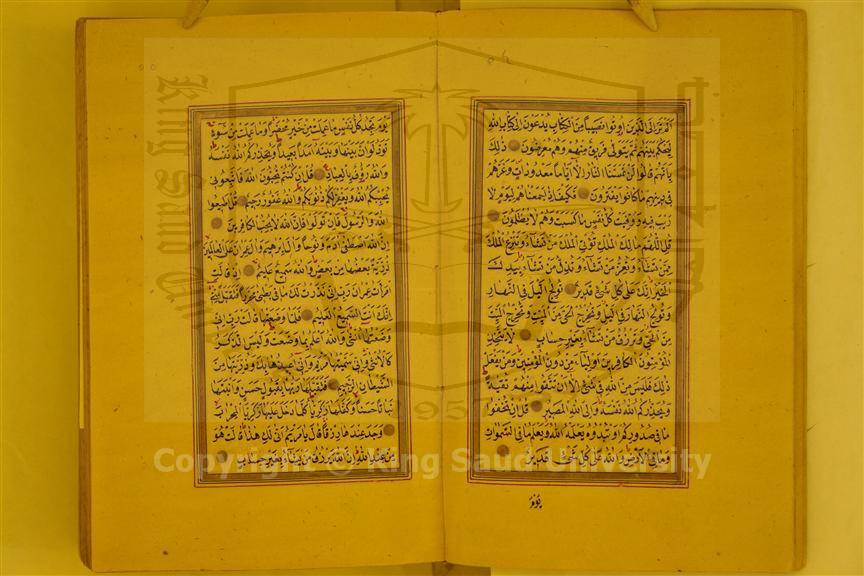 الم تر الى الذين اوتوا نصيبا من الكتاب يدعون الى كتاب الله
ليحكم بينهم ثم يتولى فريق منهم وهم معرضون ذلك
بانهم قالوا لن تمسنا النار الا اياما معدودات وغرهم
في دينهم ما كانوا يفترون فكيف اذا جمعناهم ليوم لا
ريب فيه ووفيت كل نفس ما كسبت وهم لا يظلمون
قل اللهم مالك الملك تؤتي الملك من تشاء وتنزع الملك
ممن تشاء وتعز من تشاء وتذل من تشاء بيدك
الخير انك على كل شيء قدير تولج الليل في النهار
وتولج النهار في الليل وتخرج الحي من الميت وتخرج الميت
من الحي وترزق من تشاء بغير حساب لا يتخذ
المؤمنون الكافرين اولياء من دون المؤمنين ومن يفعل
ذلك فليس من الله في شيء الا ان تتقوا منهم تقية
ويحذركم الله نفسه والى الله المصير قل ان تخفوا
ما في صدوركم او تبدوه يعلمه الله ويعلم ما في السموات
وما في الارض والله على كل شيء قدير
يوم
يوم تجد كل نفس ما عملت من خير محضرا وما عملت من سوء
تود لو ان بينها وبينه امدا بعيدا ويحذركم الله نفسه
والله رؤف بالعباد قل ان كنتم تحبون الله فاتبعوني
يحببكم الله ويغفر لكم ذنوبكم والله غفور رحيم قل اطيعوا
الله والرسول فان تولوا فان الله لا يحب الكافرين
ان الله اصطفى آدم ونوحا وآل ابرهيم وآل عمران على العالمين
ذرية بعضها من بعض والله سميع عليم اذ قالت
امرات عمران رب اني نذرت لك ما في بطني محررا فتقبل مني
انك انت السميع العليم فلما وضعتها قالت رب اني
وضعتها انثى والله اعلم بما وضعت وليس الذكر
كالانثى واني سميتها مريم واني اعيذها بك وذريتها من
الشيطان الرجيم فتقبلها ربها بقبول حسن وانبتها
نباتا حسنا وكفلها زكريا كلما دخل عليها زكريا المحراب
وجد عندها رزقا قال يا مريم انى لك هذا قالت هو
من عند الله ان الله يرزق من يشاء بغير حساب
King Saud
1957
Copyright © King Saud University